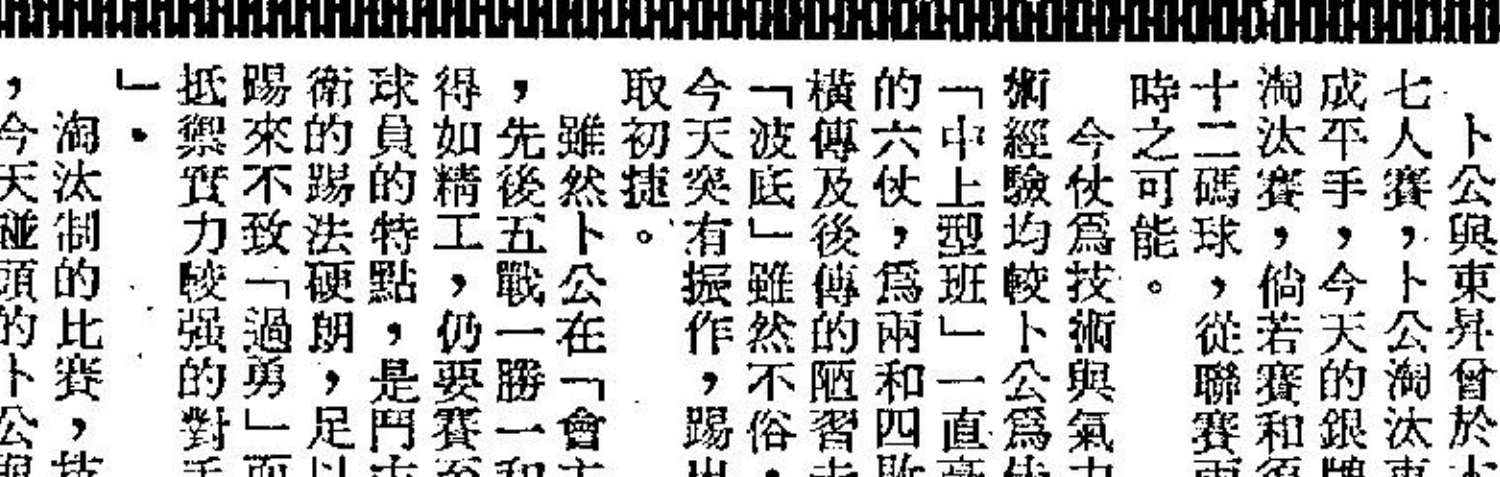 卜公與東昇曾於
七人賽，卜公淘汰東
成平手，今天的銀牌
淘汰賽，倘若賽和須
十二碼球，從聯賽兩
時之可能。
今仗爲技術與氣力
術經驗均較卜公爲
「中上型班」一直
的六仗，爲兩和四敗
橫傳及後傳的陋習
「波底」雖然不俗，
今天突有振作，踢出
取初捷。
雖然卜公在「會主
，先後五戰一勝一和
得如精工，仍要賽至
球員的特點，是鬥志
衛的踢法硬朗，足以
踢來不致「過勇」而
抵禦實力較强的對手
」。
淘汰制的比賽，技
，今天碰頭的卜公與